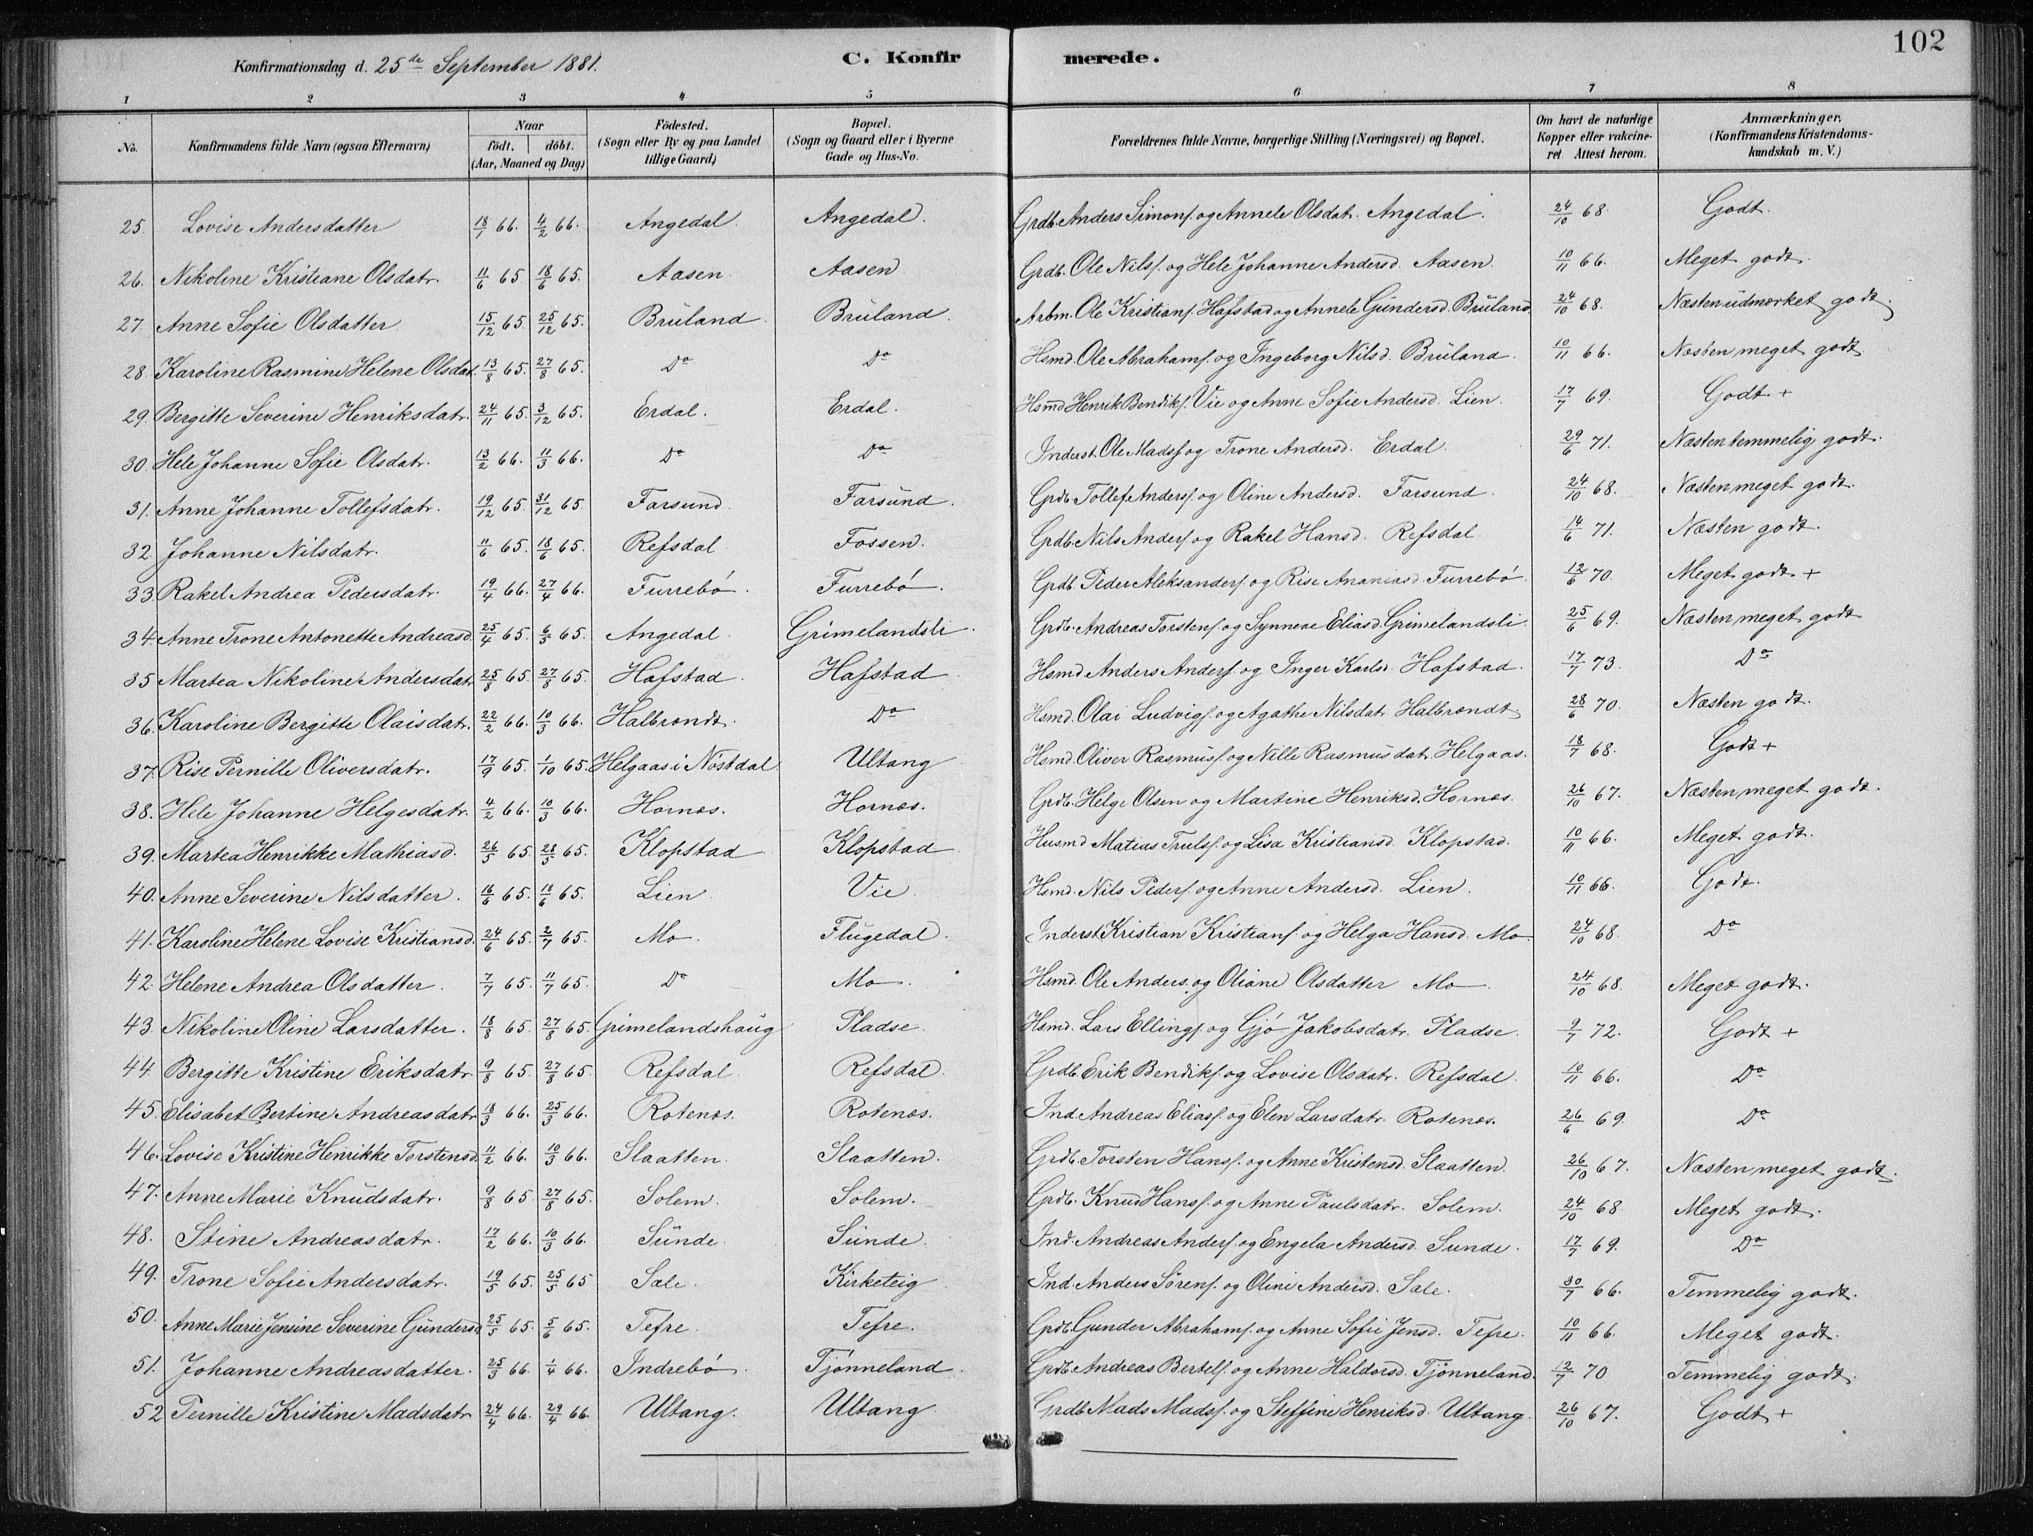 102
Konfirmationsdag d. 25de September 1881.
C. Konfirmerede.
1 2 3 4 5 6 7 8
No. | Konfirmandens fulde Navn (ogsaa Efternavn) | Naar födt. döbt. (Aar, Maaned og Dag) | Födested. (Sogn eller By og paa Landet tillige Gaard) | Bopæl. (Sogn og Gaard eller i Byerne Gade og Hus-No. | Forældrenes fulde Navne, borgerlige Stilling (Næringsvei) og Bopæl. | Om havt de naturlige Kopper eller vakcineret. Attest herom. | Anmærkninger. (Konfirmandens Kristendomskundskab m. V.)
25. Lovise Andersdatter 18/1 66. 4/2 66. Angedal. Angedal. Grdb. Anders Simons. og Annele Olsdat. Angedal. 24/10 68. Godt.
26. Nikoline Kristiane Olsdatr. 11/6 65. 18/6 65. Aasen. Aasen Grdb. Ole Nils. og Hele Johanne Andersd. Aasen. 10/11 66. Meget godt.
27. Anne Sofie Olsdatter 15/12 65. 25/12 65. Bruland. Bruland. Arbm. Ole Kristians. Hafstad og Annele Gundersd. Bruland. 24/10 68. Næsten udmærket godt.
28. Karoline Rasmine Helene Olsdat. 13/8 65. 27/8 65. Do Do Hsmd. Ole Abrahams. og Ingeborg Nilsd. Bruland. 10/11 66. Næsten meget godt
29. Bergitte Severine Henriksdatr. 24/11 65. 3/12 65. Erdal. Erdal. Hsmd Henrik Bendiks. Vie og Anne Sofie Andersd. Lien. 17/7 69. Godt +
30. Hele Johanne Sofie Olsdatr. 13/2 66. 11/3 66. Do Do Inderst. Ole Mads. og Trone Andersd. Erdal. 29/6 71. Næsten temmelig godt.
31. Anne Johanne Tollefsdatr. 19/12 65. 31/12 65. Farsund. Farsund. Grdb. Tollef Anders. og Oline Andersd. Farsund. 24/10 68. Næsten meget godt.
32. Johanne Nilsdatr. 11/6 65. 18/6 65. Refsdal Fossen. Grdb. Nils Anders. og Rakel Hansd. Refsdal 14/6 71. Næsten godt.
33. Rakel Andrea Pedersdatr. 19/4 66. 27/4 66. Furrebö. Furrebö. Grdb. Peder Aleksanders. og Rise Ananiasd. Furrebö. 12/6 70. Meget godt +
34. Anne Trone Antonette Andreasd. 25/4 65. 6/5 65. Angedal. Grimelandsli. Grdb. Andreas Torstens. og Synneve Eliasd. Grimelandsli. 25/6 69. Næsten meget godt
35 Martea Nikoline Andersdatr. 25/8 65. 27/8 65. Hafstad. Hafstad Hsmd. Anders Anders. og Inger Karlsd. Hafstad. 17/7 73. Do
36. Karoline Bergitte Olaisdatr. 22/2 66. 10/3 66. Halbrændt. Do Hsmd. Olai Ludvigs. og Agathe Nilsdatr. Halbrændt. 28/6 70. Næsten godt.
37. Rise Pernille Oliversdatr. 17/9 65. 1/10 65. Helgaas i Nöstdal Ultang Hsmd. Oliver Rasmus. og Nille Rasmusdatr. Helgaas. 18/7 68. Godt +
38. Hele Johanne Helgesdatr. 4/2 66. 10/3 66. Hornæs. Hornæs. Grdb. Helge Olsen og Martine Henriksd. Hornæs. 26/10 67. Næsten meget godt.
39. Martea Henrikke Mathiasd. 26/5 65. 28/5 65. Klopstad Klopstad Husmd Matias Truls. og Lisa Kristiansd. Klopstad. 10/11 66. Meget godt.
40. Anne Severine Nilsdatter. 16/6 65. 18/6 65. Lien. Vie Hsmd. Nils Peders. og Anne Andersd. Lien. 10/11 66. Godt.
41. Karoline Helene Lovise Kristiansd. 24/6 65. 2/7 65. Mo. Flugedal. Inderst Kristian Kristians. og Helga Hansd. Mo. 24/10 68. Do
42. Helene Andrea Olsdatter. 7/7 65. 11/7 65. Do Mo. Hsmd. Ole Anders. og Oliane Olsdatter Mo. 24/10 68. Meget godt.
43. Nikoline Oline Larsdatter. 18/8 65. 27/8 65. Grimelandshaug Pladse. Hsmd. Lars Ellings. og Gjö Jakobsdatr. Pladse. 9/7 72. Godt +
44. Bergitte Kristine Eriksdatr. 9/8 65. 27/8 65. Refsdal. Refsdal. Grdb. Erik Bendiks. og Lovise Olsdatr. Refsdal. 10/11 66. Do
45. Elisabet Bertine Andreasdatr. 18/3 66. 25/3 66. Rotenæs. Rotenæs. Ind. Andreas Elias. og Elen Larsdatr. Rotenæs. 26/6 69. Do
46. Lovise Kristine Henrikke Torstensd. 11/2 66. 10/3 66. Slaatten. Slaatten. Grdb. Torsten Hans. og Anne Kristensd. Slaatten 26/10 67. Næsten meget godt.
47. Anne Marie Knudsdatr. 9/8 65. 27/8 65. Solem. Solem. Grdb. Knud Hans. og Anne Paulsdatr. Solem. 24/10 68. Meget godt.
48. Stine Andreasdatr. 17/2 66. 10/3 66. Sunde. Sunde. Ind. Andreas Anders. og Engela Andersd. Sunde. 17/7 69. Do
49. Trone Sofie Andersdatr. 19/5 65. 25/5 65 Sale. Kirketeig Ind. Anders Sörens. og Oline Andersd. Sale. 30/7 66. Temmelig godt.
50. Anne Marie Jensine Severine Gundersd 25/5 65. 5/6 65. Tefre. Tefre. Grdb. Gunder Abrahams. og Anne Sofie Jensd. Tefre. 10/11 66. Meget godt.
51. Johanne Andreasdatter. 25/3 66. 1/4 66. Indrebö. Tjönneland. Grdb. Andreas Bertels. og Anne Haldorsd. Tjönneland. 12/7 70 Temmelig godt.
52 Pernille Kristine Madsdatr. 24/4 66. 29/4 66. Ultang. Ultang Grdb Mads Mads. og Steffine Henriksd. Ultang. 26/10 67. Godt +